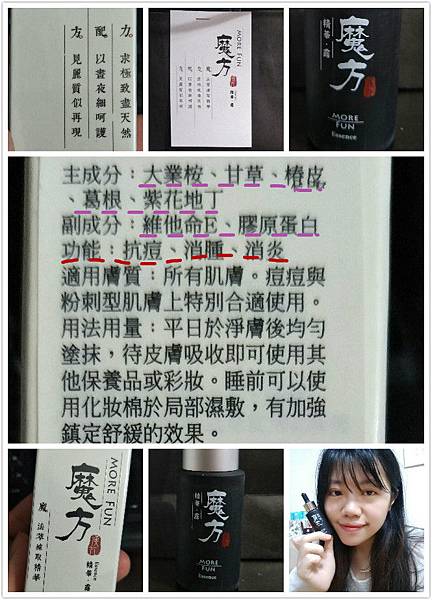 方。求極致盡天然
配。以晝夜細呵護
方。見麗質似再現
MORE FUN
魔方
精華·露
精華·露
魔方
MORE
FUN
Essence
主成分：大業桉、甘草、椿皮
、葛根、紫花地丁
副成分：維他命E、膠原蛋白
功能：抗痘、消腫、消炎
適用膚質：所有肌膚。痘痘與
粉刺型肌膚上特別合適使用。
用法用量：平日於淨膚後均勻
塗抹，待皮膚吸收即可使用其
他保養品或彩妝。睡前可以使
用化妝棉於局部濕敷，有加強
鎮定舒緩的效果。
MORE FUN
魔方
Essence
精華·露
魔 法萃練取精華
精華·露
魔方
MORE
FUN
Essence